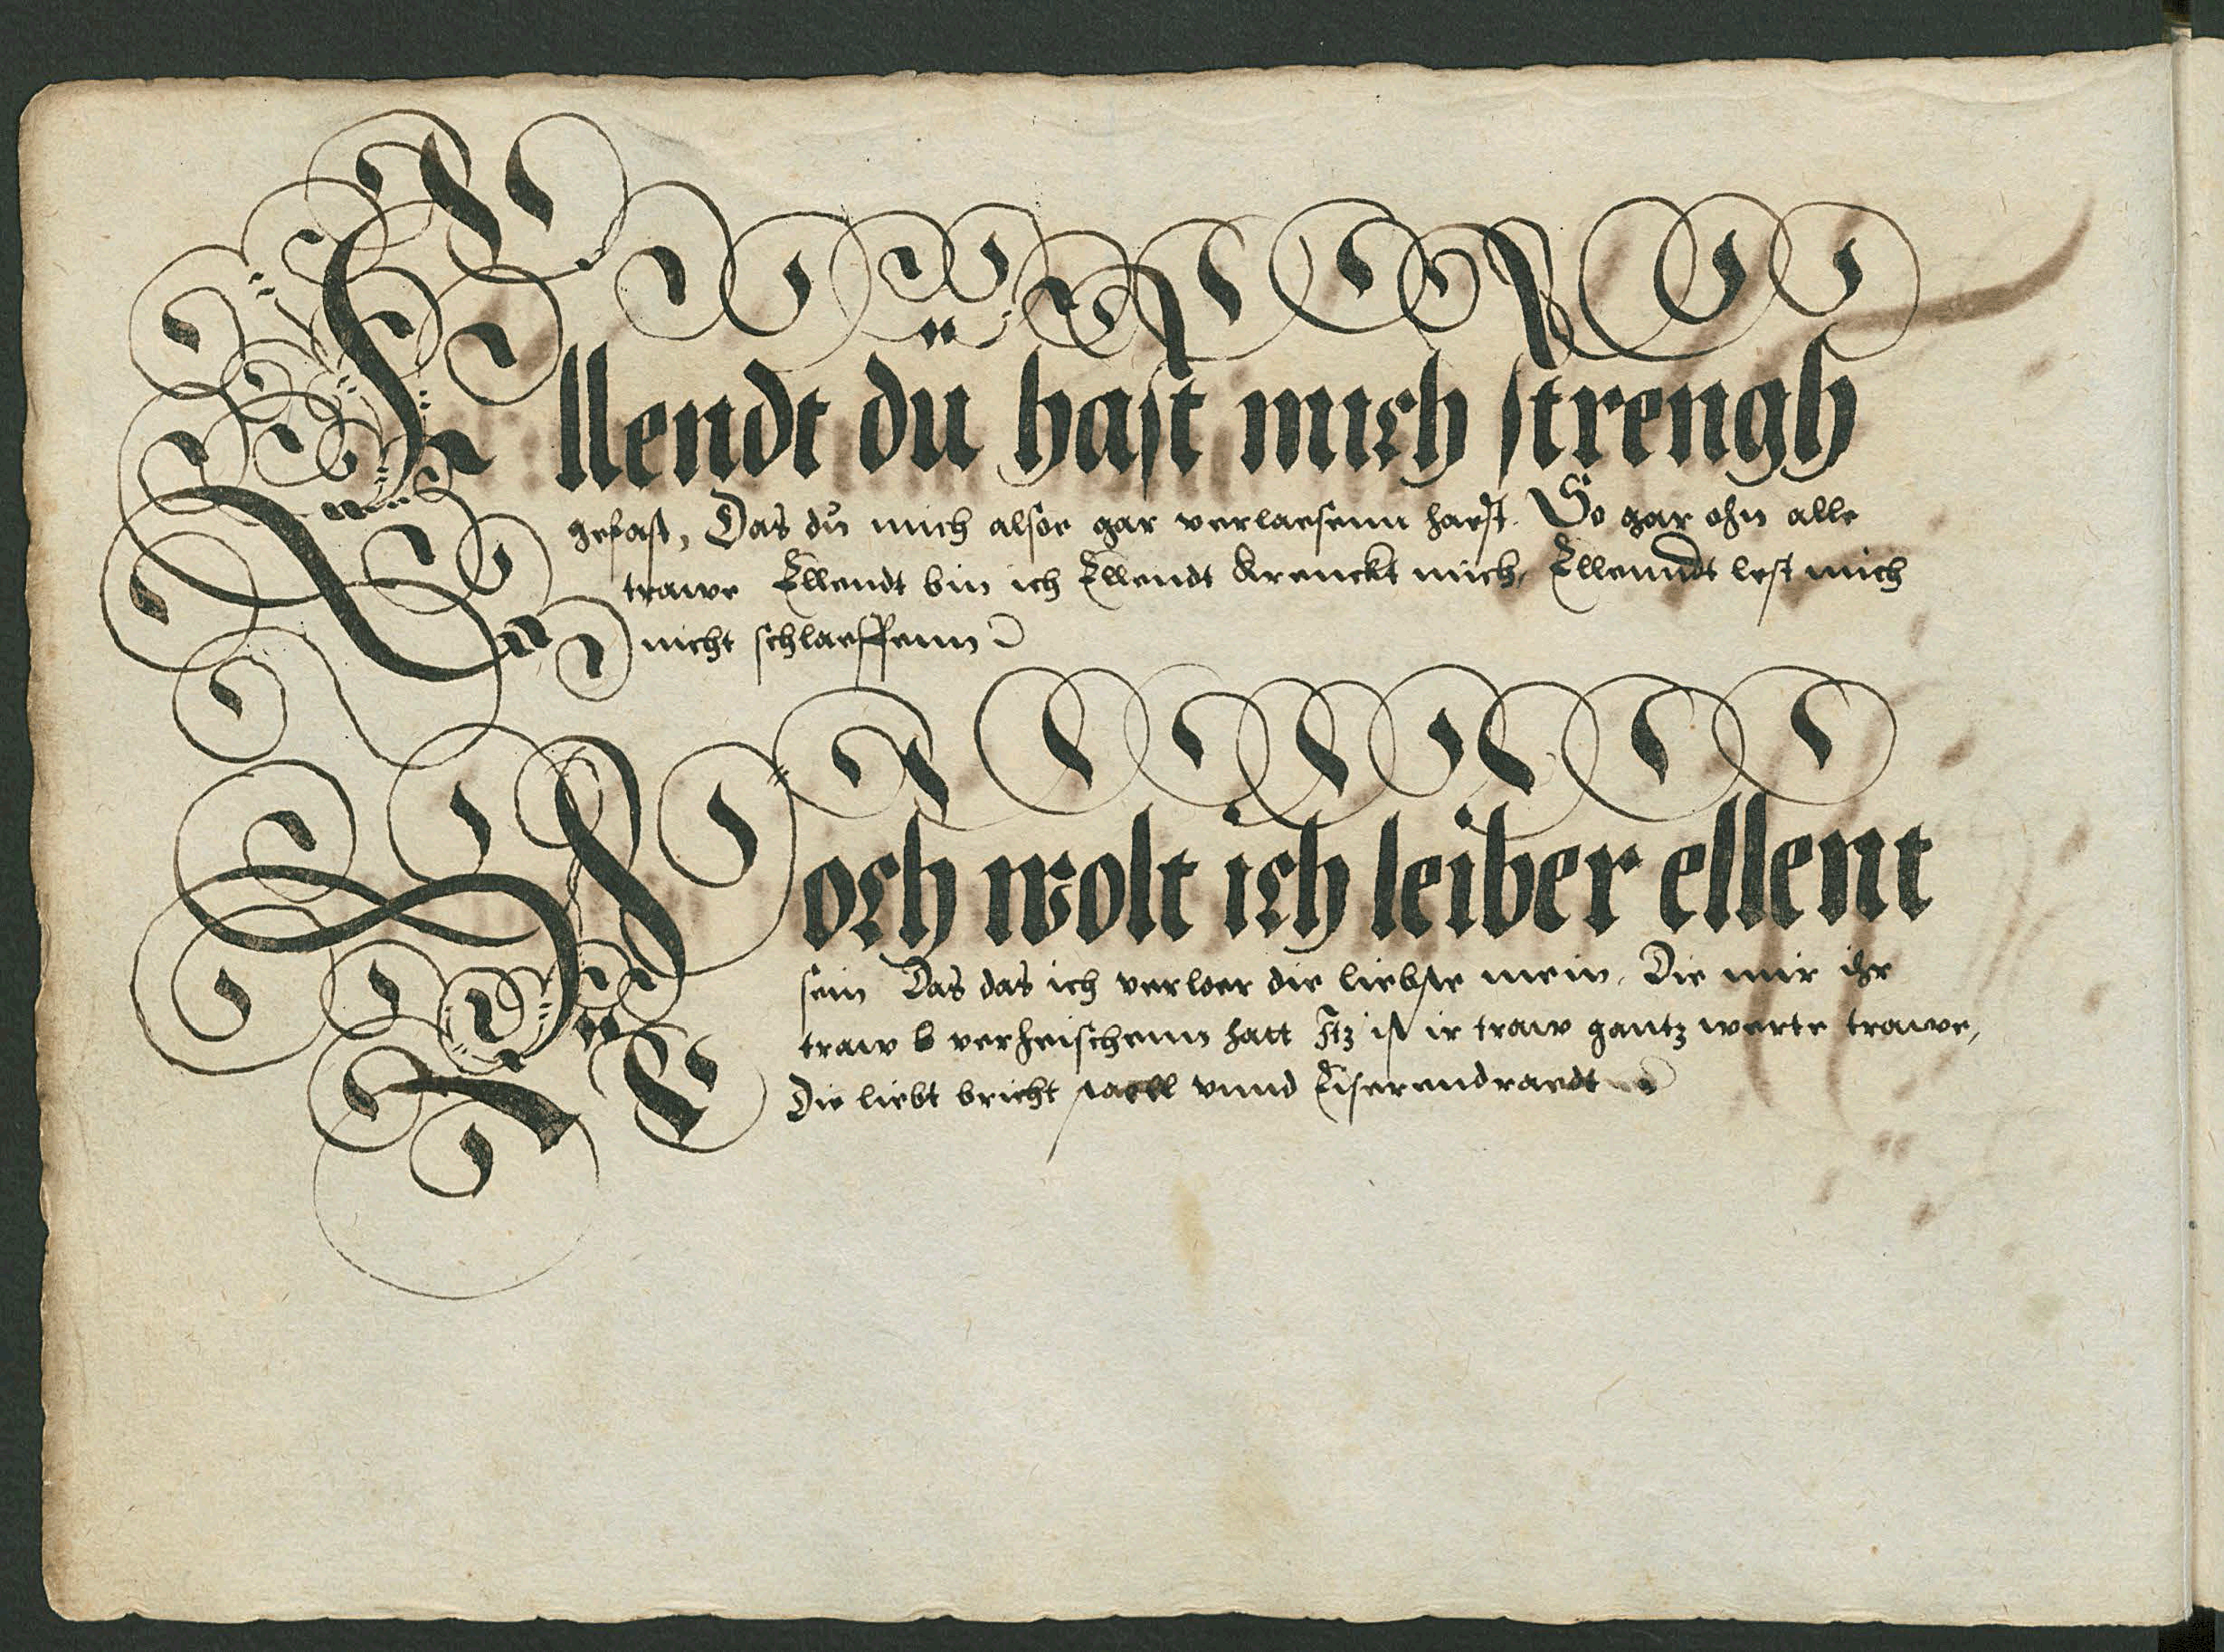 Ellendt dü hast mich strengh
gefast, Das dů mich alsoe gar verlaesenn haest. So gar ohn alle
trawe Ellendt bin ich Ellendt krenckt mich, Ellenndt lest mich
nicht schlaeffenn
Noch wolt ich leiber ellent
sein Das das ich verloer die liebste mein, Die mir ihr
traw b verheischenn hatt Itz ist ir traw gantz werte trawe,
Die liebt bricht staell vnnd Eiserendraedt